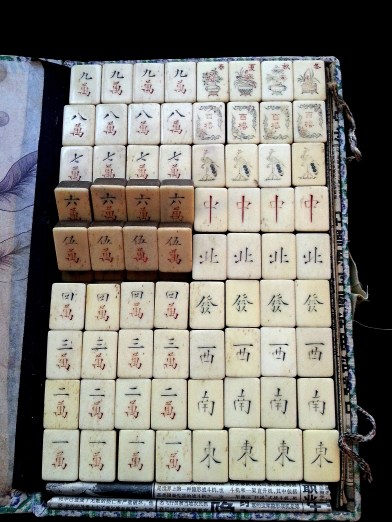 九 九 九 九 春 夏 秋 冬
萬 萬 萬 萬
八 八 八 八
萬 萬 萬 萬
七 七 七 七
萬 萬 萬 萬
六 六 六 六 中 中 中 中
萬 萬 萬 萬
伍 伍 伍 伍 北 北 北 北
萬 萬 萬 萬
四 四 四 四 發 發 發 發
萬 萬 萬 萬
三 三 三 三 西 西 西 西
萬 萬 萬 萬
二 二 二 二 南 南 南 南
萬 萬 萬 萬
一 一 一 一 東 東 東 東
萬 萬 萬 萬